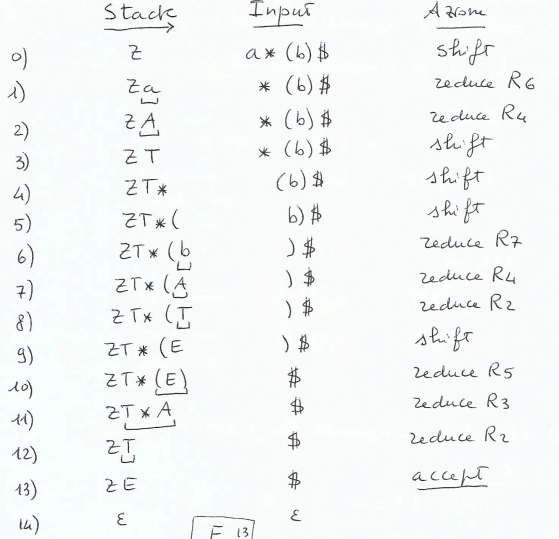 Stack Input Azione
0) Z a * (b) $ shift
1) Z a * (b) $ reduce R6
2) Z A * (b) $ reduce R4
3) Z T * (b) $ shift
4) Z T * (b) $ shift
5) Z T * ( b) $ shift
6) Z T * (b ) $ reduce R7
7) Z T * (A ) $ reduce R4
8) Z T * (T ) $ reduce R2
9) Z T * (E ) $ shift
10) Z T * (E) $ reduce R5
11) Z T * A $ reduce R3
12) Z T $ reduce R2
13) Z E $ accept
14) ε ε
E 13